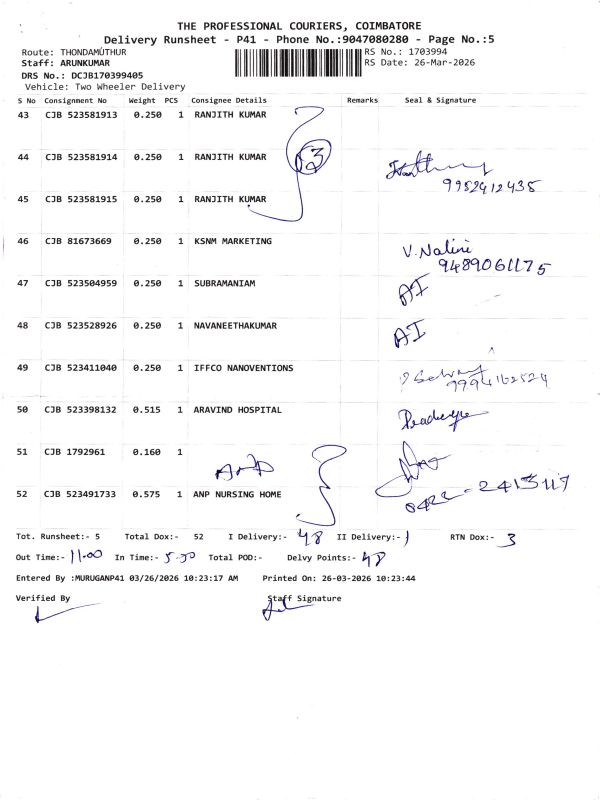 THE PROFESSIONAL COURIERS, COIMBATORE
Delivery Runsheet - P41 - Phone No.:9047080280 - Page No.:5
Route: THONDAMUTHUR RS No.: 1703994
Staff: ARUNKUMAR RS Date: 26-Mar-2026
DRS No.: DCJB170399405
Vehicle: Two Wheeler Delivery
S No Consignment No Weight PCS Consignee Details Remarks Seal & Signature
43 CJB 523581913 0.250 1 RANJITH KUMAR
44 CJB 523581914 0.250 1 RANJITH KUMAR 3
9952412435
45 CJB 523581915 0.250 1 RANJITH KUMAR
46 CJB 81673669 0.250 1 KSNM MARKETING V. Nalini
9489061175
47 CJB 523504959 0.250 1 SUBRAMANIAM AI
48 CJB 523528926 0.250 1 NAVANEETHAKUMAR AI
49 CJB 523411040 0.250 1 IFFCO NANOVENTIONS
9994162524
50 CJB 523398132 0.515 1 ARAVIND HOSPITAL
51 CJB 1792961 0.160 1 ANP
52 CJB 523491733 0.575 1 ANP NURSING HOME 0422-2413117
Tot. Runsheet:- 5 Total Dox:- 52 I Delivery:- 48 II Delivery:- 1 RTN Dox:- 3
Out Time:- 11.00 In Time:- 5.30 Total POD:- Delvy Points:- 48
Entered By :MURUGANP41 03/26/2026 10:23:17 AM Printed On: 26-03-2026 10:23:44
Verified By Staff Signature